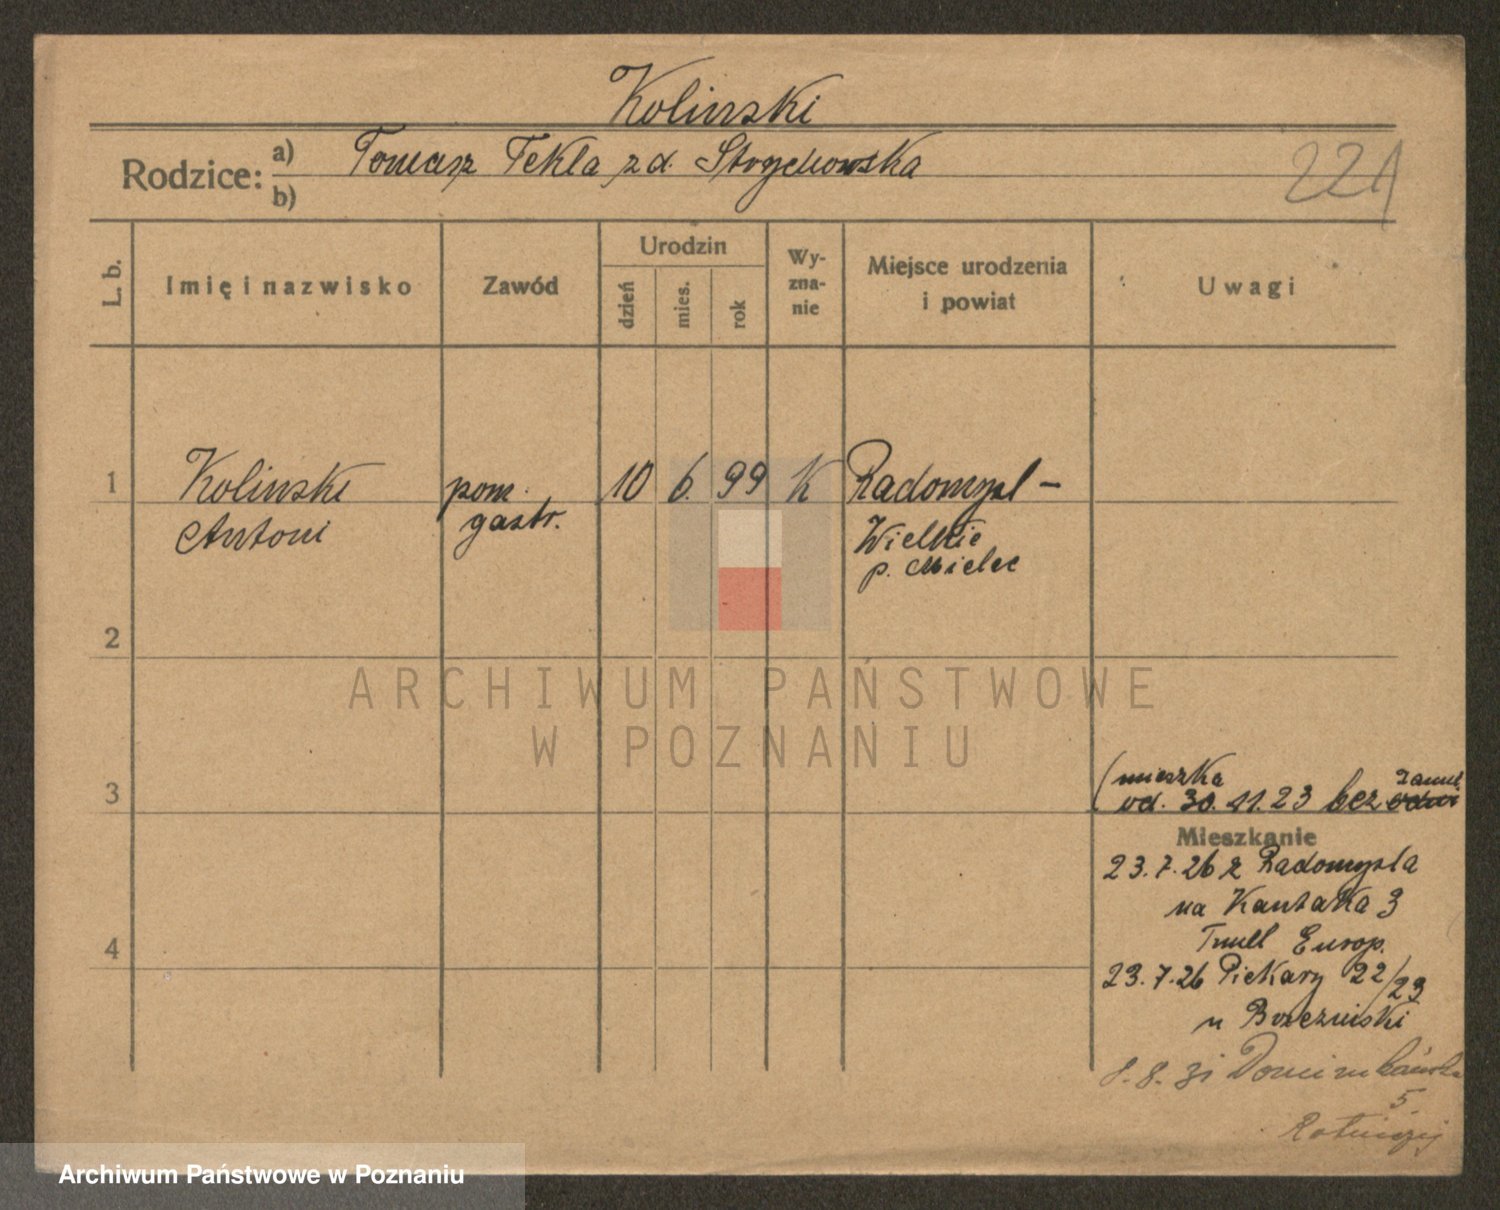 Kolinski
Rodzice:
a) Tomasz Tekla z d. Strychowska
b)
221
L. b.
Imię i nazwisko
Zawód
Urodzin
dzień
mies.
rok
Wy-
zna-
nie
Miejsce urodzenia
i powiat
Uwagi
1
Kolinski
Antoni
pom.
gastr.
10
6.
99
K
Radomysl –
Wielkie
p. Mielec
2
ARCHIWUM PAŃSTWOWE
W POZNANIU
3
(mieszka
od. 30. 11. 23 bez
Mieszkanie
23.7.26 z Radomysla
na Kantaka 3
Europ.
4
23.7.26 Piekary 22/23
u Brzezinski
8.8.31 Dominikańska
5
Archiwum Państwowe w Poznaniu